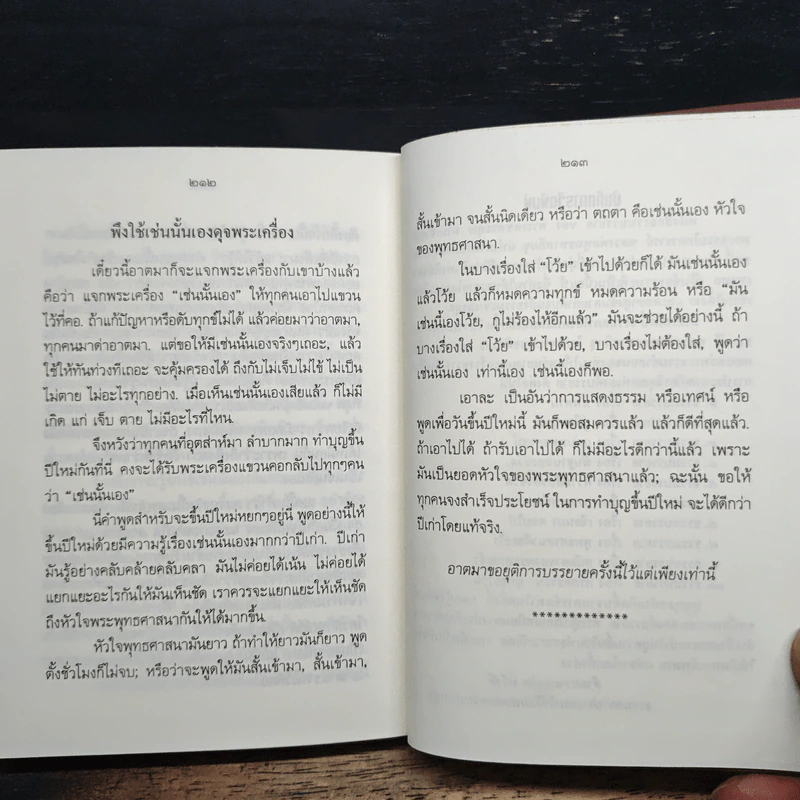 ๒๑๒
พึงใช้เช่นนั้นเองดุจพระเครื่อง
เดี๋ยวนี้อาตมาก็จะแจกพระเครื่องกับเขาบ้างแล้ว
คือว่า แจกพระเครื่อง “เช่นนั้นเอง” ให้ทุกคนเอาไปแขวน
ไว้ที่คอ. ถ้าแก้ปัญหาหรือดับทุกข์ไม่ได้ แล้วค่อยมาว่าอาตมา,
ทุกคนมาด่าอาตมา. แต่ขอให้มีเช่นนั้นเองจริงๆเถอะ, แล้ว
ใช้ให้ทันท่วงทีเถอะ จะคุ้มครองได้ ถึงกับไม่เจ็บไม่ไข้ ไม่เป็น
ไม่ตาย ไม่อะไรทุกอย่าง. เมื่อเห็นเช่นนั้นเองเสียแล้ว ก็ไม่มี
เกิด แก่ เจ็บ ตาย ไม่มีอะไรที่ไหน.
จึงหวังว่าทุกคนที่อุตส่าห์มา ลำบากมาก ทำบุญขึ้น
ปีใหม่กันที่นี่ คงจะได้รับพระเครื่องแขวนคอกลับไปทุกๆคน
ว่า “เช่นนั้นเอง”
นี่คำพูดสำหรับจะขึ้นปีใหม่หยกๆอยู่นี่ พูดอย่างนี้ให้
ขึ้นปีใหม่ด้วยมีความรู้เรื่องเช่นนั้นเองมากกว่าปีเก่า. ปีเก่า
มันรู้อย่างคลับคล้ายคลับคลา มันไม่ค่อยได้เน้น ไม่ค่อยได้
แยกแยะอะไรกันให้มันเห็นชัด เราควรจะแยกแยะให้เห็นชัด
ถึงหัวใจพระพุทธศาสนากันให้ได้มากขึ้น.
หัวใจพุทธศาสนามันยาว ถ้าทำให้ยาวมันก็ยาว พูด
ตั้งชั่วโมงก็ไม่จบ; หรือว่าจะพูดให้มันสั้นเข้ามา, สั้นเข้ามา,
๒๑๓
สั้นเข้ามา จนสั้นนิดเดียว หรือว่า ตถตา คือเช่นนั้นเอง หัวใจ
ของพุทธศาสนา.
ในบางเรื่องใส่ “โว้ย” เข้าไปด้วยก็ได้ มันเช่นนั้นเอง
แล้วโว้ย แล้วก็หมดความทุกข์ หมดความร้อน หรือ “มัน
เช่นนี้เองโว้ย, กูไม่ร้องไห้อีกแล้ว” มันจะช่วยได้อย่างนี้ ถ้า
บางเรื่องใส่ “โว้ย” เข้าไปด้วย, บางเรื่องไม่ต้องใส่, พูดว่า
เช่นนั้นเอง เท่านี้เอง เช่นนี้เองก็พอ.
เอาละ เป็นอันว่าการแสดงธรรม หรือเทศน์ หรือ
พูดเพื่อวันขึ้นปีใหม่นี้ มันก็พอสมควรแล้ว แล้วก็ดีที่สุดแล้ว.
ถ้าเอาไปได้ ถ้ารับเอาไปได้ ก็ไม่มีอะไรดีกว่านี้แล้ว เพราะ
มันเป็นยอดหัวใจของพระพุทธศาสนาแล้ว; ฉะนั้น ขอให้
ทุกคนจงสำเร็จประโยชน์ ในการทำบุญขึ้นปีใหม่ จะได้ดีกว่า
ปีเก่าโดยแท้จริง.
อาตมาขอยุติการบรรยายครั้งนี้ไว้แต่เพียงเท่านี้
*************